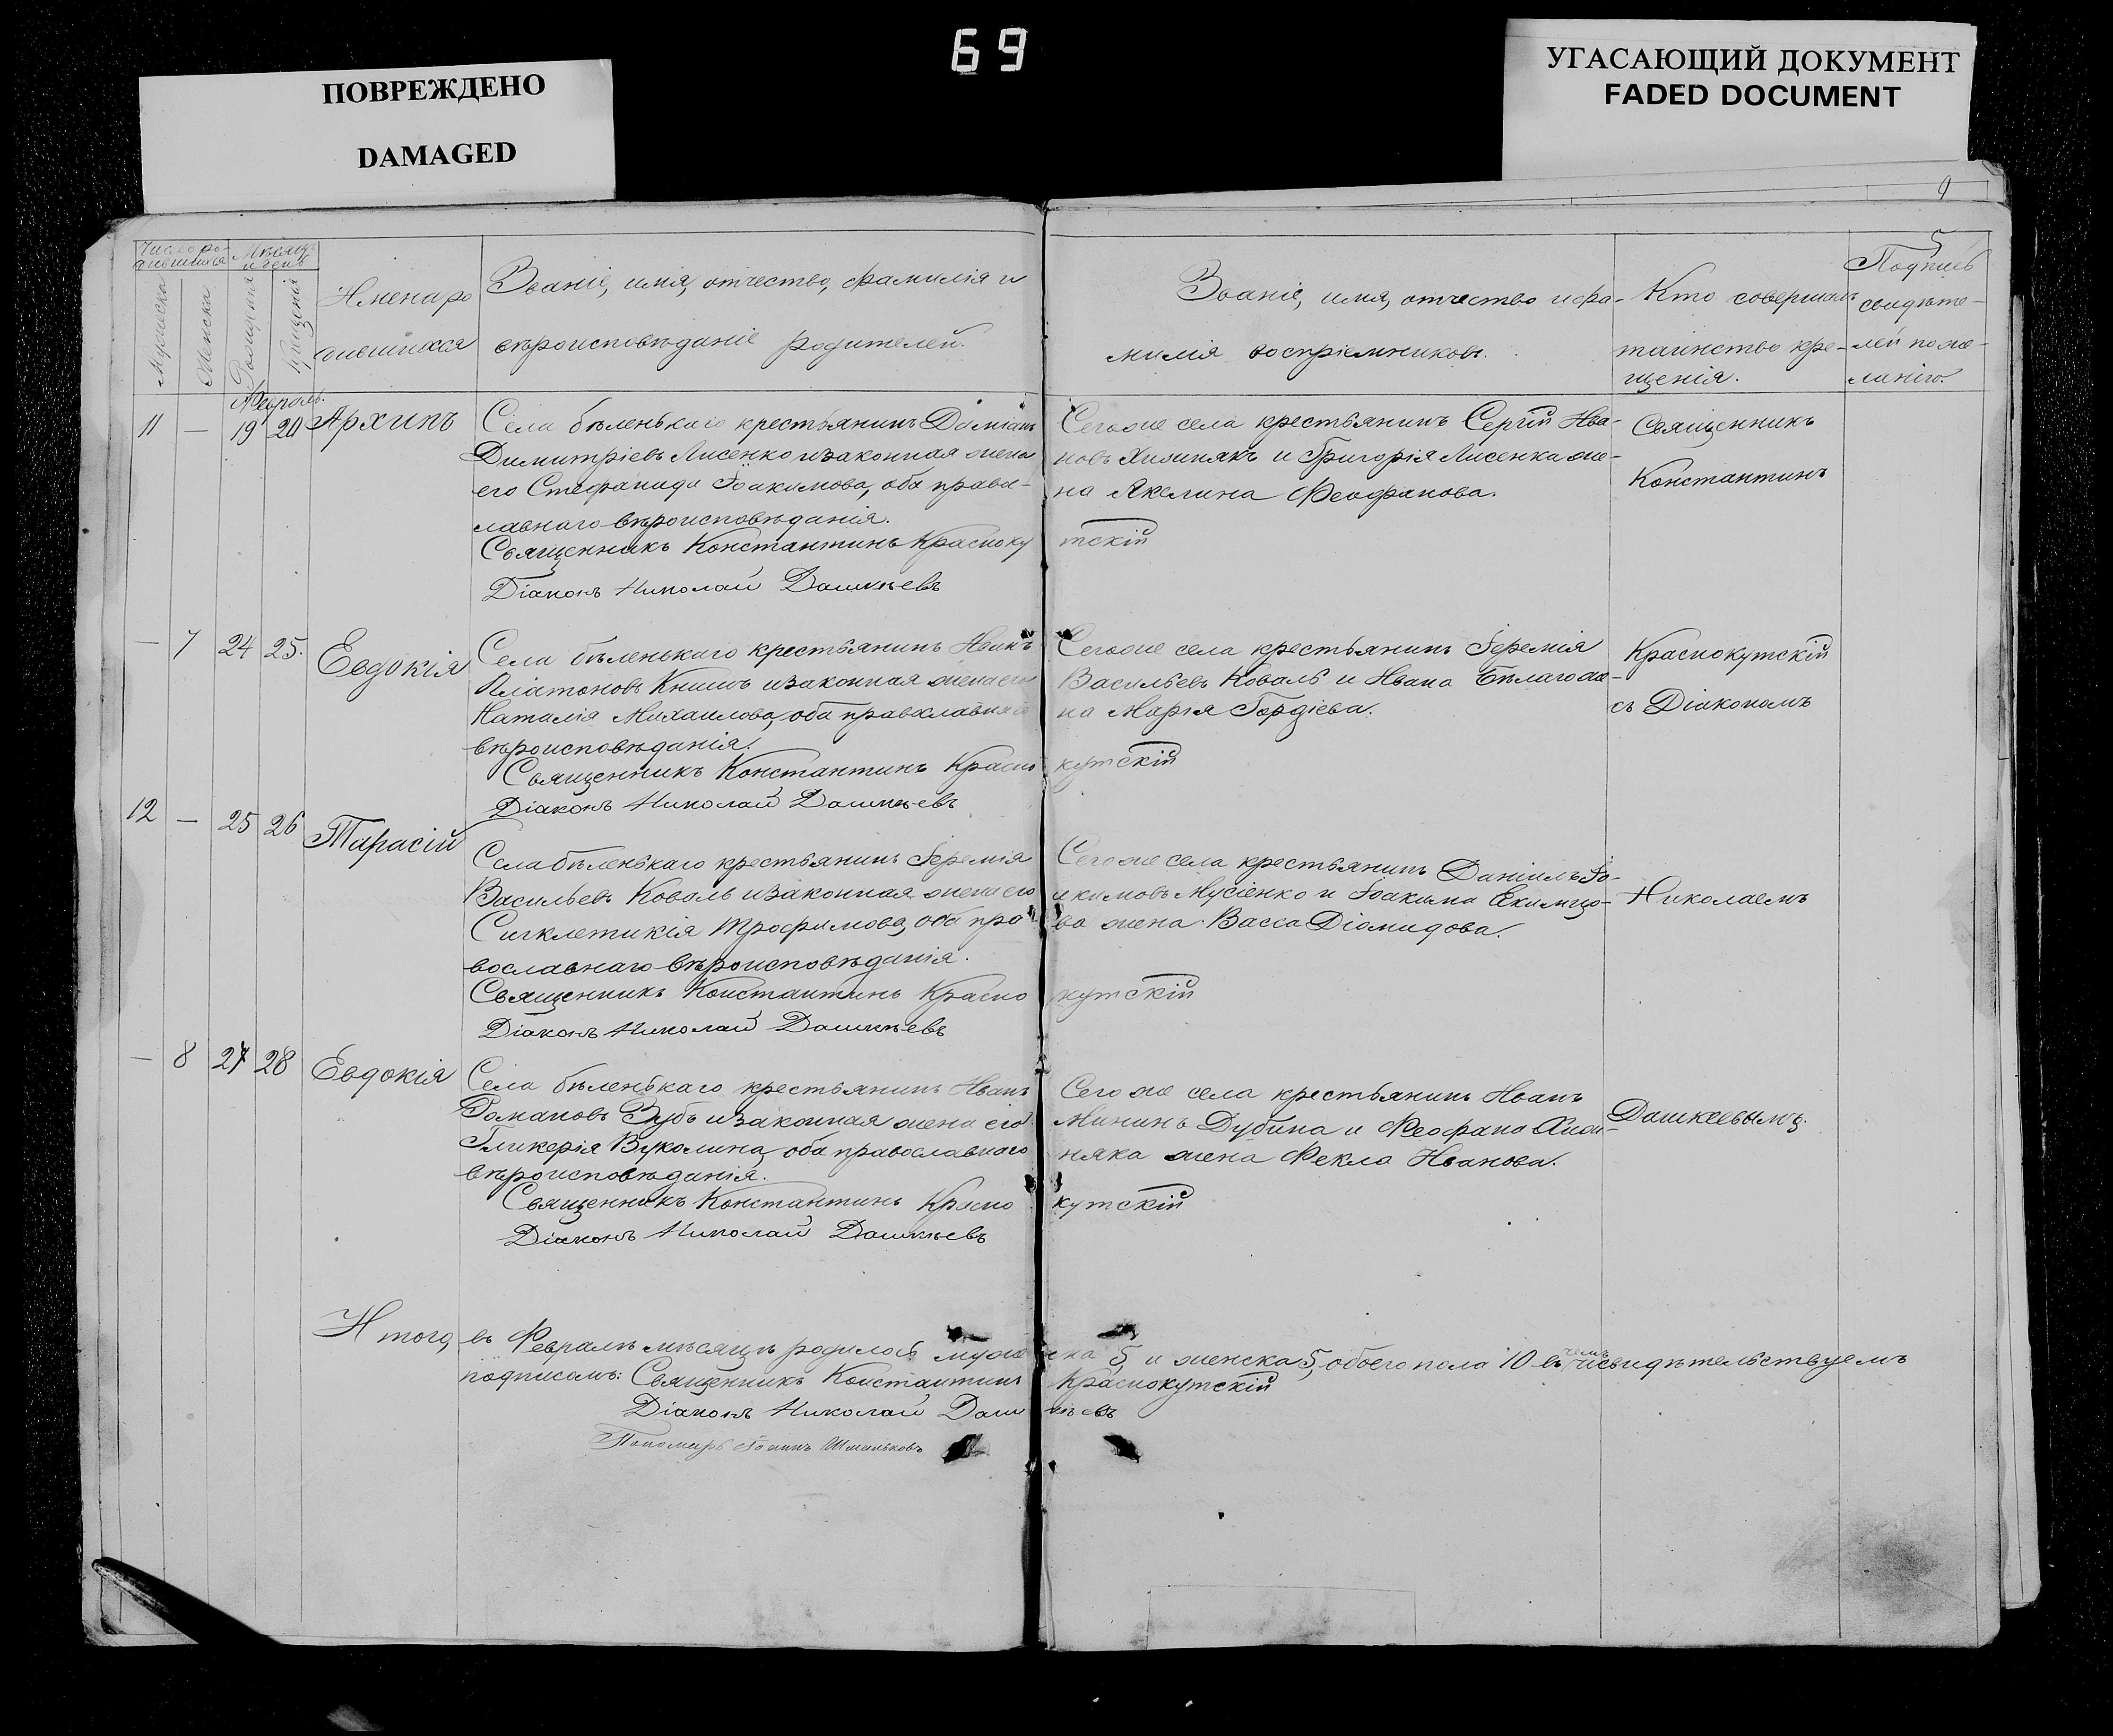 69
ПОВРЕЖДЕНО
DAMAGED
УГАСАЮЩИЙ ДОКУМЕНТ
FADED DOCUMENT
9
5
Число ро-
дившихся
Мѣсяцъ
и день
Мужеска
Женска
Рожденія
Крещенія
Имена ро
дившихся
Званіе, имя, отчество, фамилія и
вѣроисповѣданіе родителей.
Званіе, имя, отчество и фа-
милія воспріемниковъ.
Кто совершалъ
таинство кре-
щенія.
Подпись
свидѣте-
лей по же-
ланію.
Февраль.
11 — 19 20 Архипъ
Села бѣленькаго крестьянинъ Даміанъ
Димитріевъ Лисенко и законная жена
его Стефанида Іоакимова, оба право-
лавнаго вѣроисповѣданія.
Священникъ Константинъ Красноку
Діаконъ Николай Дашкѣевъ
Сегоже села крестьянинъ Сергій Ива-
новъ Хижнякъ и Григорія Лисенка же-
на Акелина Феофанова.
тскій
Священникъ
Константинъ
— 7 24 25. Евдокія
Села бѣленькаго крестьянинъ Иванъ
Платоновъ Книшъ и законная жена его
Наталія Михаилова, оба православнаго
вѣроисповѣданія.
Священникъ Константинъ Красно
Діаконъ Николай Дашкѣевъ
Сегоже села крестьянинъ Іеремія
Васильевъ Коваль и Ивана Бѣлаго же-
на Марія Гордіева.
кутскій
Краснокутскій
съ Діакономъ
12 — 25 26 Тарасій
Села бѣленькаго крестьянинъ Іеремія
Васильевъ Коваль и законная жена его
Сигклетикія Трофимова, оба пра
вославнаго вѣроисповѣданія.
Священникъ Константинъ Красно
Діаконъ Николай Дашкѣевъ
Сегоже села крестьянинъ Даніилъ Іо-
акимовъ Мусіенко и Іоакима Екимцо-
ва жена Васса Діомидова.
кутскій
Николаемъ
— 8 27 28 Евдокія
Села бѣленькаго крестьянинъ Иванъ
Романовъ Зубъ и законная жена его
Гликерія Вуколина, оба православнаго
вѣроисповѣданія.
Священникъ Константинъ Красно
Діаконъ Николай Дашкѣевъ
Сего же села крестьянинъ Иванъ
Мининъ Дубина и Феофана Хиж-
няка жена Фекла Иванова.
кутскій
Дашкеевымъ.
Итого, въ Февралѣ мѣсяцѣ родилось муже ска 5, и женска 5, обоего пола 10 въ чемъ и свидѣтельствуемъ
подписомъ: Священникъ Константинъ Краснокутскій
Діаконъ Николай Даш кѣевъ
Пономарь Іоаннъ